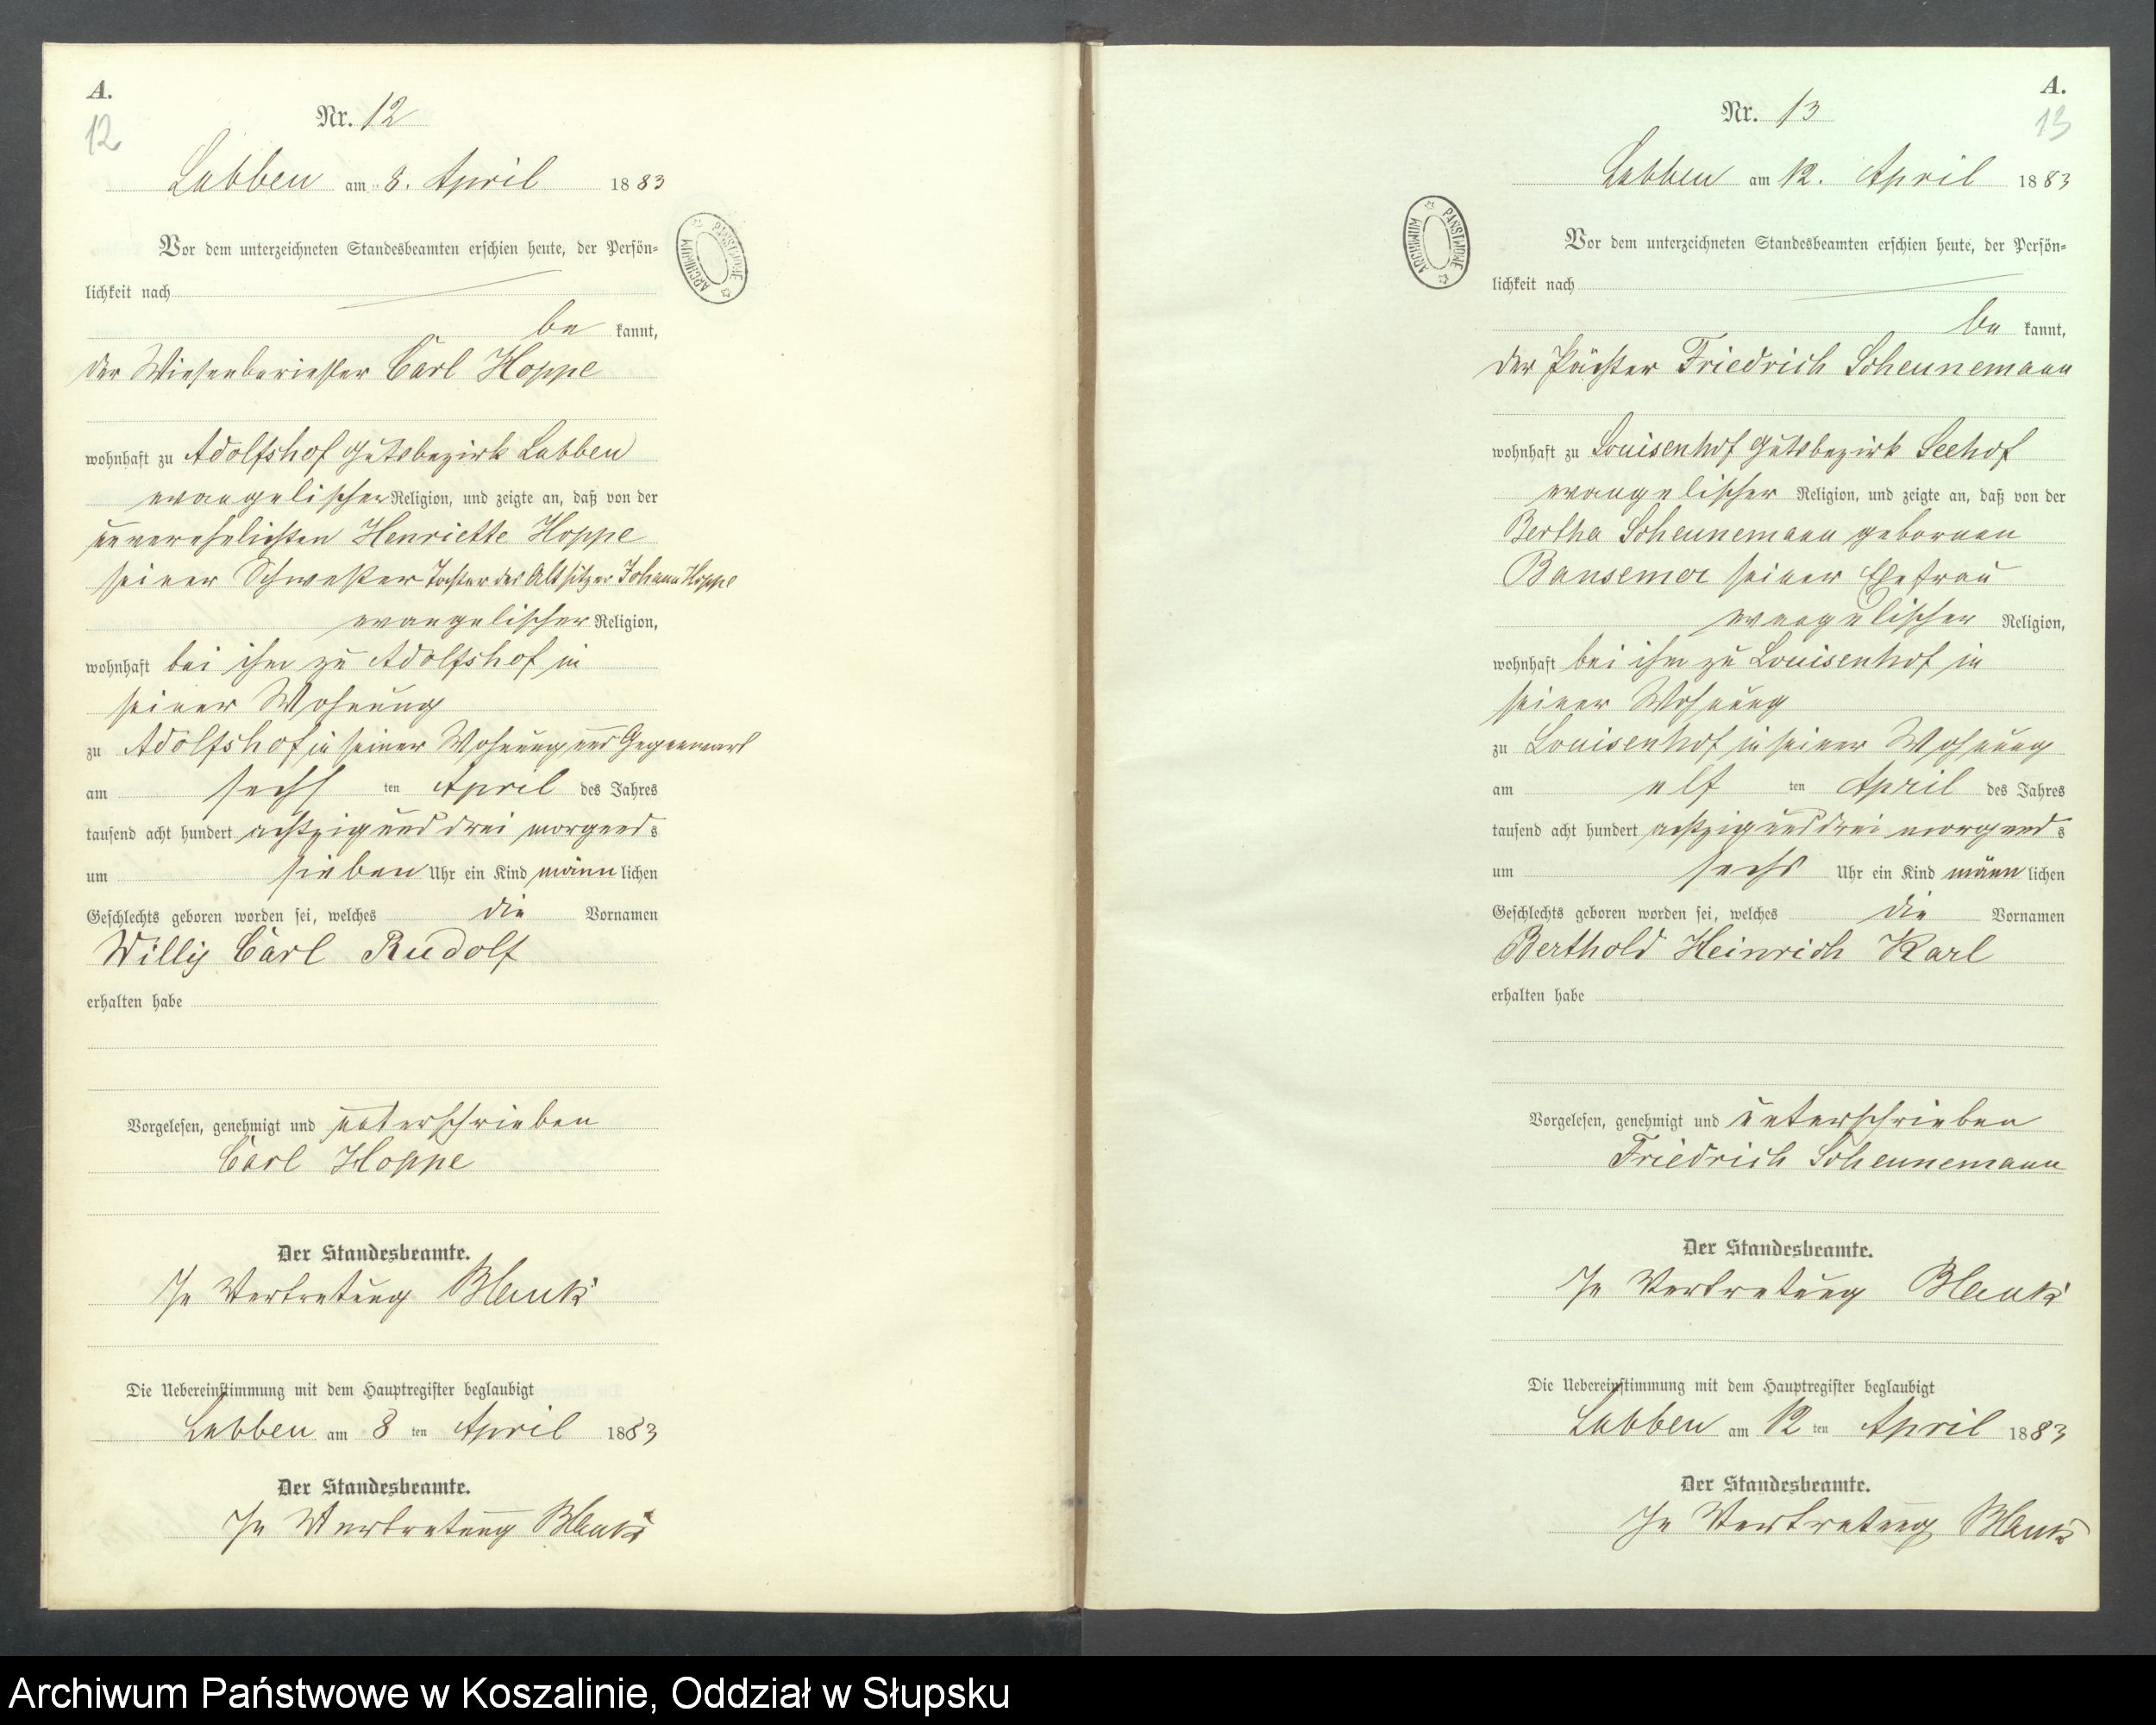 A.
12
Nr. 12
Labben am 8. April 1883
Vor dem unterzeichneten Standesbeamten erschien heute, der Persön-
lichkeit nach
be kannt,
der Wiesenberiesler Carl Hoppe
wohnhaft zu Adolfshof Gutsbezirk Labben
evangelischer Religion, und zeigte an, daß von der
unverehelichten Henriette Hoppe
seiner Schwester Tochter des Altsitzer Johann Hoppe
evangelischer Religion,
wohnhaft bei ihm zu Adolfshof in
seiner Wohnung
zu Adolfshof in seiner Wohnung und Gegenwart
am sechs ten April des Jahres
tausend acht hundert achtzig und drei morgend s
um sieben Uhr ein Kind männ lichen
Geschlechts geboren worden sei, welches die Vornamen
Willy Carl Rudolf
erhalten habe
Vorgelesen, genehmigt und unterschrieben
Carl Hoppe
Der Standesbeamte.
In Vertretung Blank
Die Uebereinstimmung mit dem Hauptregister beglaubigt
Labben am 8 ten April 1883
Der Standesbeamte.
In Vertretung Blank
ARCHIWUM PAŃSTWOWE
A.
13
Nr. 13
Labben am 12. April 1883
Vor dem unterzeichneten Standesbeamten erschien heute, der Persön-
lichkeit nach
be kannt,
der Pächter Friedrich Scheunemann
wohnhaft zu Louisenhof Gutsbezirk Seehof
evangelischer Religion, und zeigte an, daß von der
Bertha Scheunemann gebornen
Bansemer seiner Ehefrau
evangelischer Religion,
wohnhaft bei ihm zu Louisenhof in
seiner Wohnung
zu Louisenhof in seiner Wohnung
am elf ten April des Jahres
tausend acht hundert achtzig und drei morgend s
um sechs Uhr ein Kind männ lichen
Geschlechts geboren worden sei, welches die Vornamen
Berthold Heinrich Karl
erhalten habe
Vorgelesen, genehmigt und unterschrieben
Friedrich Scheunemann
Der Standesbeamte.
In Vertretung Blank
Die Uebereinstimmung mit dem Hauptregister beglaubigt
Labben am 12 ten April 1883
Der Standesbeamte.
In Vertretung Blank
ARCHIWUM PAŃSTWOWE
Archiwum Państwowe w Koszalinie, Oddział w Słupsku